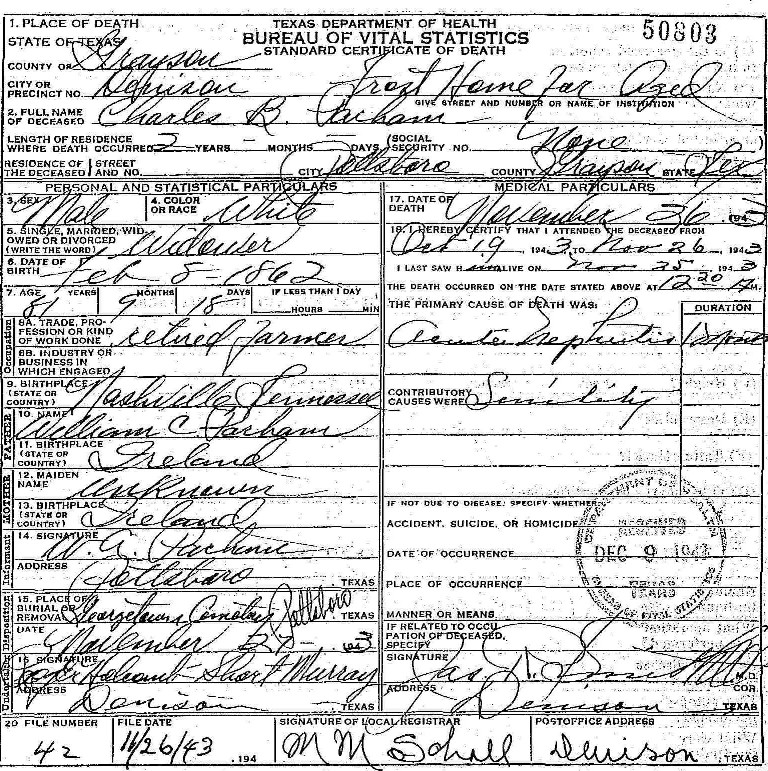 1. PLACE OF DEATH TEXAS DEPARTMENT OF HEALTH 50803
STATE OF TEXAS BUREAU OF VITAL STATISTICS
STANDARD CERTIFICATE OF DEATH
COUNTY OF Grayson
CITY OR PRECINCT NO. Denison Frost Home for Aged
GIVE STREET AND NUMBER OR NAME OF INSTITUTION
2. FULL NAME OF DECEASED Charles B. Parham
LENGTH OF RESIDENCE WHERE DEATH OCCURRED 2 YEARS - MONTHS - DAYS (SOCIAL SECURITY NO. None )
RESIDENCE OF THE DECEASED STREET AND NO. CITY Pottsboro COUNTY Grayson STATE Tex
PERSONAL AND STATISTICAL PARTICULARS
3. SEX Male 4. COLOR OR RACE White
5. SINGLE, MARRIED, WIDOWED OR DIVORCED (WRITE THE WORD) Widower
6. DATE OF BIRTH Feb 8 - 1862
7. AGE 81 YEARS 9 MONTHS 18 DAYS IF LESS THAN 1 DAY HOURS MIN
Occupation
8A. TRADE, PROFESSION OR KIND OF WORK DONE retired farmer
8B. INDUSTRY OR BUSINESS IN WHICH ENGAGED
9. BIRTHPLACE (STATE OR COUNTRY) Nashville Tennessee
FATHER
10. NAME William C. Parham
11. BIRTHPLACE (STATE OR COUNTRY) Ireland
MOTHER
12. MAIDEN NAME Unknown
13. BIRTHPLACE (STATE OR COUNTRY) Ireland
Informant
14. SIGNATURE W. A. Parham
ADDRESS Pottsboro TEXAS
Disposition
15. PLACE OF BURIAL OR REMOVAL Georgetown Cemetery Pottsboro TEXAS
DATE November 27 - 43
Undertaking
16. SIGNATURE Holcomb Short Murray
ADDRESS Denison TEXAS
MEDICAL PARTICULARS
17. DATE OF DEATH November 26 1943
18. I HEREBY CERTIFY THAT I ATTENDED THE DECEASED FROM
Oct 19 1943, TO Nov 26 1943
I LAST SAW H im ALIVE ON Nov 25 1943
THE DEATH OCCURRED ON THE DATE STATED ABOVE AT 12 20 M.
THE PRIMARY CAUSE OF DEATH WAS: DURATION
Acute Nephritis
CONTRIBUTORY CAUSES WERE Senility
IF NOT DUE TO DISEASE, SPECIFY WHETHER
ACCIDENT, SUICIDE, OR HOMICIDE
DATE OF OCCURRENCE
PLACE OF OCCURRENCE
MANNER OR MEANS
IF RELATED TO OCCUPATION OF DECEASED, SPECIFY
DEPARTMENT OF HEALTH
RECEIVED
DEC 9 1943
TEXAS
BUREAU OF VITAL STATISTICS
SIGNATURE Jas. M.D.
COR.
ADDRESS Denison TEXAS
20 FILE NUMBER FILE DATE SIGNATURE OF LOCAL REGISTRAR POSTOFFICE ADDRESS
42 11/26/43 .194 M M Scholl Denison , TEXAS